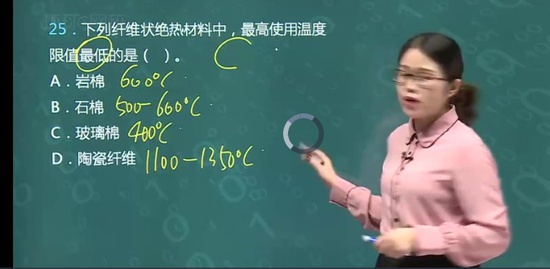 25．下列纤维状绝热材料中，最高使用温度
限值最低的是（ ）。 C
A．岩棉 600℃
B．石棉 500-600℃
C．玻璃棉 400℃
D．陶瓷纤维 1100-1350℃